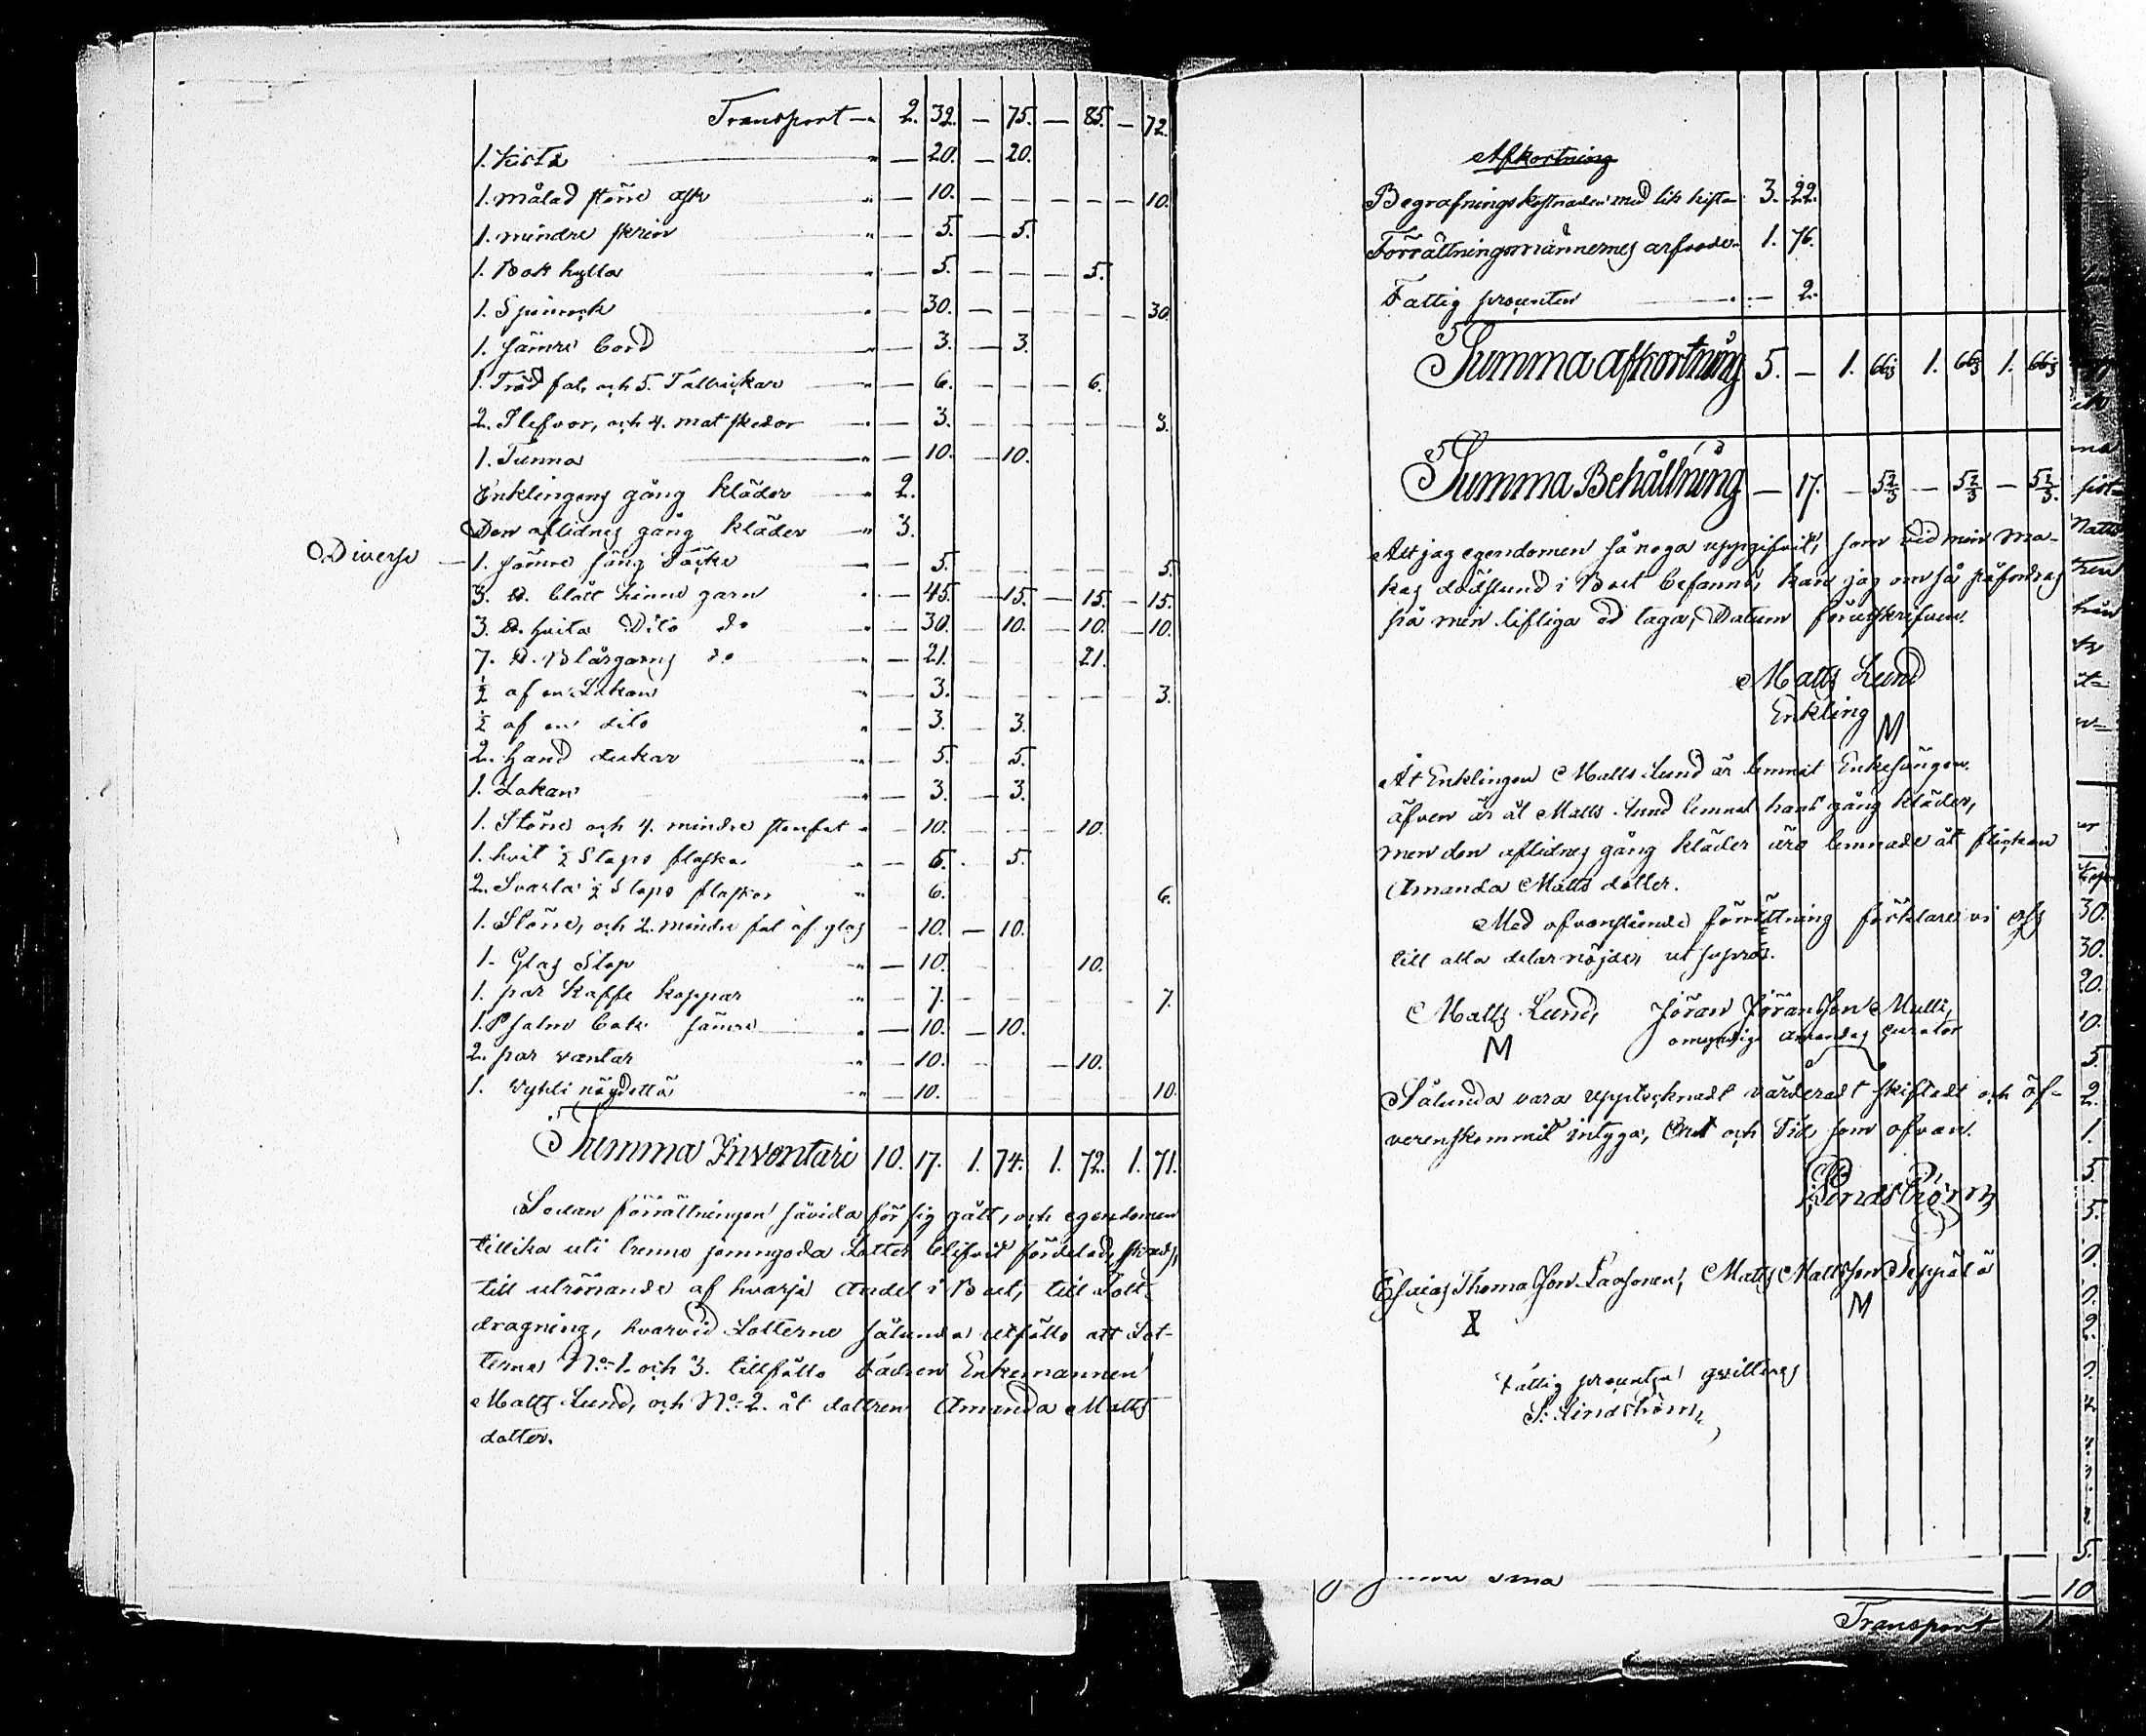 Transport — 2. 32. — 75. — 85. — 72.
1. Kista " — 20. — 20.
1. målad större ask " — 10. — — — — — 10.
1. mindre skrin " — 5. — 5.
1. Bok hylla " — 5. — — — 5.
1. Spinrock " — 30. — — — — — 30.
1. sämre bord " — 3. — 3.
1. Träd fat, och 5. Tallrickar " — 6. — — — 6.
2. Slefvar, och 4. mat skedar " — 3. — — — — — 3.
1. Tunna " — 10. — 10.
Enklingens gång kläder " 2.
Den aflidnes gång kläder " 3.
Diverse — 1. sämre säng täcke — 5. — — — — — 5.
3. ℔. blått Linne garn " — 45. — 15. — 15. — 15.
3. ℔. hvita Dito do " — 30. — 10. — 10. — 10.
7. ℔. Blårgarns do " — 21. 21.
½ af en Lakan " — 3. — — — — — 3.
½ af en dito " — 3. — 3.
2. Hand dukar " — 5. — 5.
1. Lakan " — 3. — 3.
1. Större och 4. mindre stenfat " — 10. — — — 10.
1. hvit ½ Stops flaska " — 5. — 5.
2. Svarta ½ Stops flaskor " 6. 6.
1. Större, och 2. mindre fat af glas — 10. — 10.
1. Glas Stop " — 10. 10.
1. par Kaffe koppar " — 7. — — — — — 7.
1. Psalm bok sämre " — 10. — 10.
2. par vantar " — 10. — — — 10.
1. " — 10. — — — — — 10.
Summa Inventari 10. 17. 1. 74. 1. 72. 1. 71.
Sedan förrättningen såvida för sig gått, och egendomen
tillika uti trenne jemngoda Lotter blifvit fördelad, skreds,
till utrönande af hvarje Andel i Boet, till Lott-
dragning, hvarvid Lotterne sålunda utföllo att Lot-
terne No. 1. och 3. tillföllo Fadren Enkemannen
Matts Lund, och No. 2. åt dottren Amanda Matts
dotter.
Afkortning
Begrafnings kostnaden med lik kista 3. 22.
Förrättningsmännernes arfvode 1. 76.
Fattig procenten — 2.
Summa afkortning 5. — 1. 66⅔ 1. 66⅔ 1. 66⅔
Summa Behållning — 17. — 5⅔ — 5⅔ — 5⅔.
Att jag egendomen så noga uppgifvit, som vid min ma-
kas dödsstund i Boet befanns, kan jag om så påfordras
på min lifliga ed taga, Datum förutskrifven.
Matts Lund
Enkling M
Åt Enklingen Matts Lund är lemnat Enkesängen.
äfven är åt Matts Lund lemnat hans gång kläder,
men den aflidnes gång kläder äro lemnade åt flickan
Amanda Matts dotter.
Med ofvanstående förrättning förklare vi oss
till alla delar nöjder ut supra.
Matts Lund, Jöran Jöransson Mulli,
M omyndige Amandas Curator
Sålunda vara upptecknadt värderadt skiftadt och öf-
verenskommit intyga, Ort och Tid som ofvan.
S. Lindström
Esaias Thomasson Laasonen, Matts Mattsson Seppälä
X M
Fattig procenten qvitteras
S. Lindström
30.
30.
20.
10.
5.
2.
1.
5.
5.
— 10
Transport